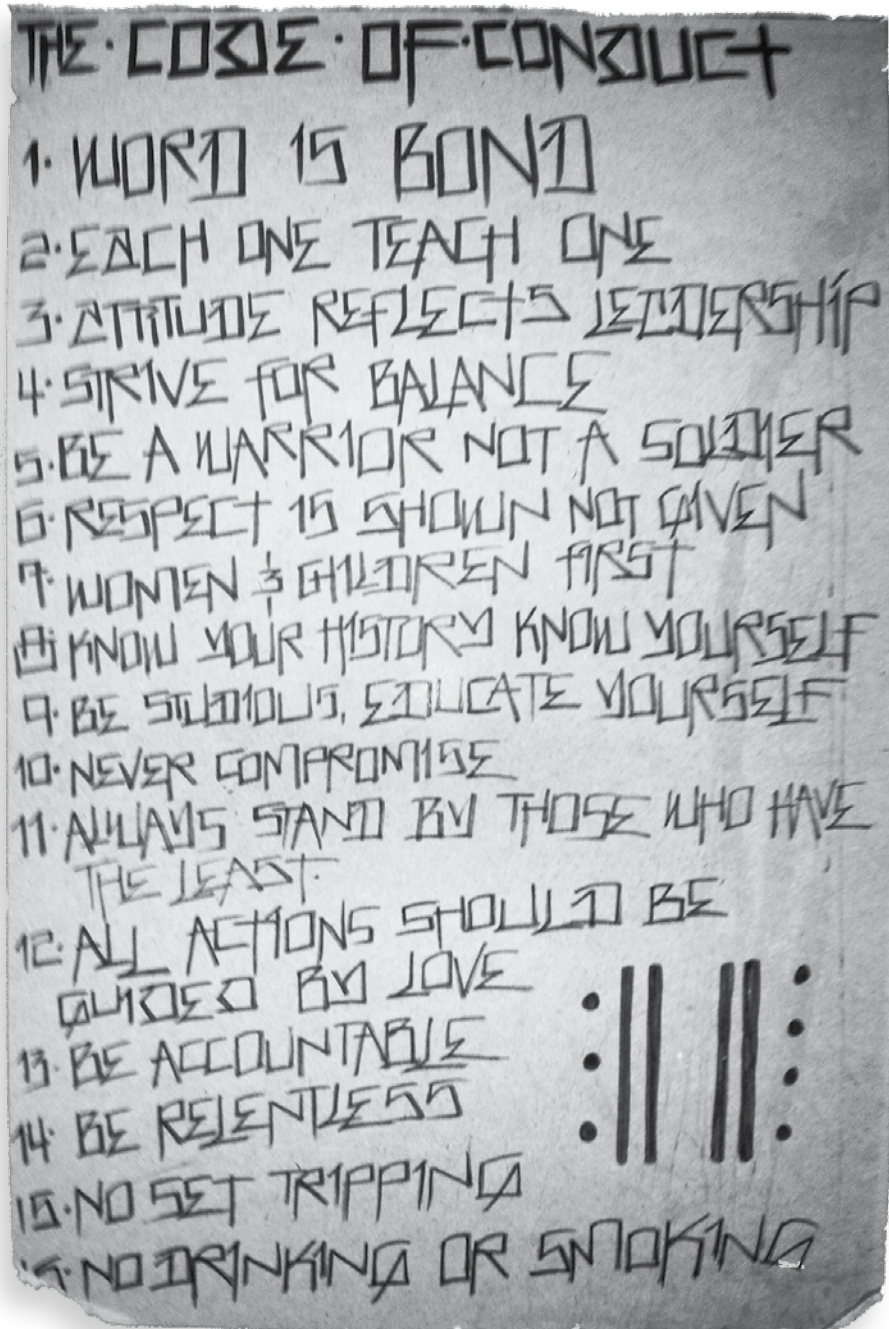 THE · CODE · OF · CONDUCT
1. WORD IS BOND
2. EACH ONE TEACH ONE
3. ATTITUDE REFLECTS LEADERSHIP
4. STRIVE FOR BALANCE
5. BE A WARRIOR NOT A SOLDIER
6. RESPECT IS SHOWN NOT GIVEN
7. WOMEN & CHILDREN FIRST
8. KNOW YOUR HISTORY KNOW YOURSELF
9. BE STUDIOUS, EDUCATE YOURSELF
10. NEVER COMPROMISE
11. ALWAYS STAND BY THOSE WHO HAVE
THE LEAST.
12. ALL ACTIONS SHOULD BE
GUIDED BY LOVE
13. BE ACCOUNTABLE
14. BE RELENTLESS
15. NO SET TRIPPING
16. NO DRINKING OR SMOKING